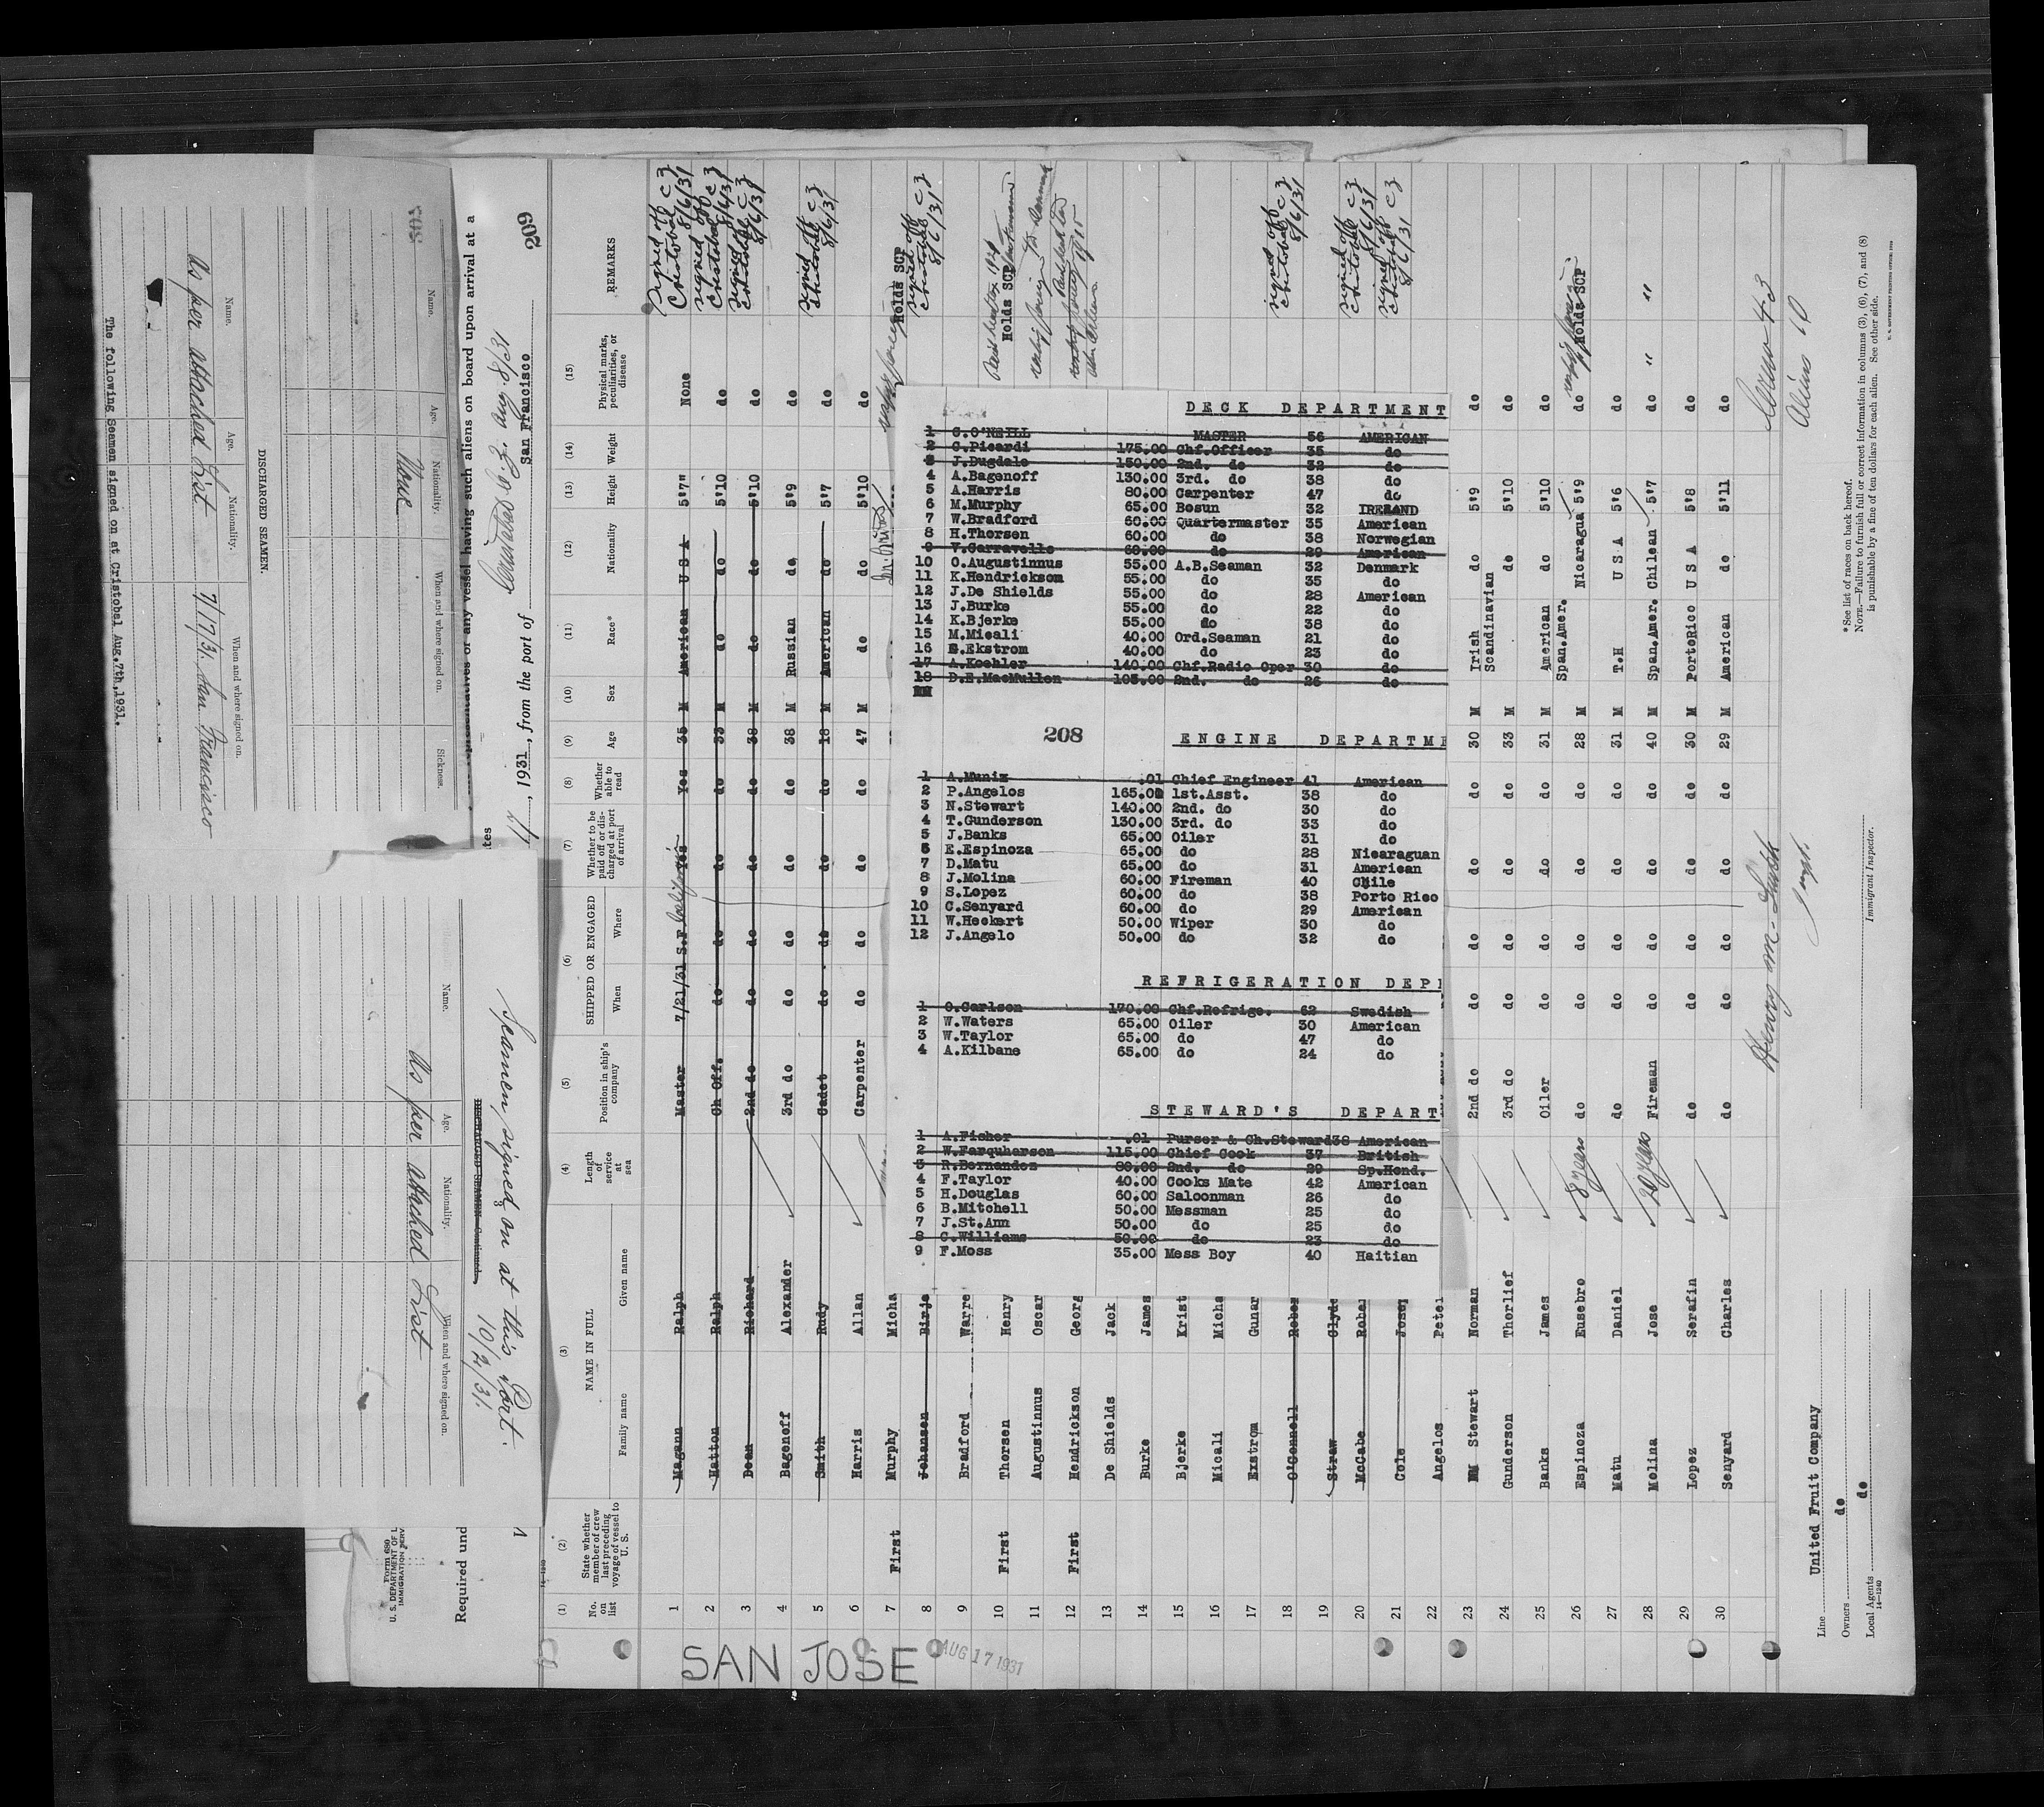 DECK DEPARTMENT
1 C.O'NEILL MASTER 56 AMERICAN
2 C.Picardi 175.00 Chf.Officer 35 do
3 J.Dugdale 150.00 2nd. do 32 do
4 A.Bagenoff 130.00 3rd. do 38 do
5 A.Harris 80.00 Carpenter 47 do
6 M.Murphy 65.00 Bosun 32 IRELAND
7 W.Bradford 60.00 Quartermaster 35 American
8 H.Thorsen 60.00 do 38 Norwegian
9 V.Carravello 60.00 do 29 American
10 O.Augustinnus 55.00 A.B.Seaman 32 Denmark
11 K.Hendrickson 55.00 do 35 do
12 J.De Shields 55.00 do 28 American
13 J.Burke 55.00 do 22 do
14 K.Bjerke 55.00 do 38 do
15 M.Micali 40.00 Ord.Seaman 21 do
16 G.Ekstrom 40.00 do 23 do
17 A.Koehler 140.00 Chf.Radio Oper 30 do
18 D.E.MacMullen 105.00 2nd. do 26 do
208
ENGINE DEPARTME
1 A.Muniz .01 Chief Engineer 41 American
2 P.Angelos 165.00 1st.Asst. 38 do
3 N.Stewart 140.00 2nd. do 30 do
4 T.Gunderson 130.00 3rd. do 33 do
5 J.Banks 65.00 Oiler 31 do
6 E.Espinoza 65.00 do 28 Nicaraguan
7 D.Matu 65.00 do 31 American
8 J.Molina 60.00 Fireman 40 Chile
9 S.Lopez 60.00 do 38 Porto Rico
10 C.Senyard 60.00 do 29 American
11 W.Heckert 50.00 Wiper 30 do
12 J.Angelo 50.00 do 32 do
REFRIGERATION DEP
1 O.Carlson 170.00 Chf.Refrige. 62 Swedish
2 W.Waters 65.00 Oiler 30 American
3 W.Taylor 65.00 do 47 do
4 A.Kilbane 65.00 do 24 do
STEWARD'S DEPART
1 A.Fisher .01 Purser & Ch.Steward 38 American
2 W.Farquharson 115.00 Chief Cook 37 British
3 R.Bernandez 80.00 2nd. do 29 Sp.Hond.
4 F.Taylor 40.00 Cooks Mate 42 American
5 H.Douglas 60.00 Saloonman 26 do
6 B.Mitchell 50.00 Messman 25 do
7 J.St.Ann 50.00 do 25 do
8 C.Williams 50.00 do 23 do
9 F.Moss 35.00 Mess Boy 40 Haitian
SAN JOSE
AUG 17 1931
Form 680
U. S. DEPARTMENT OF L
IMMIGRATION SERV
Required und
representatives of any vessel having such aliens on board upon arrival at a
209
Aug. 8/31
, 1931, from the port of
San Francisco
(1) No. on list
(2) State whether member of crew last preceding voyage of vessel to U. S.
(3) NAME IN FULL
Family name
Given name
(4) Length of service at sea
(5) Position in ship's company
(6) SHIPPED OR ENGAGED
When
Where
(7) Whether to be paid off or discharged at port of arrival
(8) Whether able to read
(9) Age
(10) Sex
(11) Race*
(12) Nationality
(13) Height
(14) Weight
(15) Physical marks, peculiarities, or disease
REMARKS
1 Magann Ralph Master 7/21/31 S.F. California Yes Yes 35 M American U S A 5'7" None Signed off Cristobal C Z 8/6/31
2 Hatton Ralph Ch Off. do do do do 33 M do do 5'10 do signed off Cristobal C Z 8/6/31
3 Dean Richard 2nd do do do do do 38 M do do 5'10 do signed off Cristobal C Z 8/6/31
4 Bagenoff Alexander 3rd do do do do do 38 M Russian do 5'9 do
5 Smith Rudy Cadet do do do do 18 M American do 5'7 do signed off Cristobal C Z 8/6/31
6 Harris Allan Carpenter do do do do 47 M do do 5'10 do
7 First Murphy Micha Holds SCP
8 Johansen Birje signed off Cristobal C Z 8/6/31
9 Bradford Warre
10 First Thorsen Henry Holds SCP
11 Augustinnus Oscar
12 First Hendrickson Georg
13 De Shields Jack
14 Burke James
15 Bjerke Krist
16 Micali Micha
17 Exstrom Gunar
18 O'Connell Rober signed off Cristobal C Z 8/6/31
19 Straw Clyde
20 McCabe Rober signed off Cristobal C Z 8/6/31
21 Cole Josep signed off Cristobal C Z 8/6/31
22 Angelos Peter
23 Stewart Norman 2nd do do do do do 30 M Irish do 5'9 do
24 Gunderson Thorlief 3rd do do do do do 33 M Scandinavian do 5'10 do
25 Banks James Oiler do do do do 31 M American do 5'10 do
26 Espinoza Eusebro 8 years do do do do do 28 M Span.Amer. Nicaragua 5'9 do Holds SCP
27 Matu Daniel do do do do do 31 M T.H U S A 5'6 do
28 Molina Jose 20 years Fireman do do do do 40 M Span.Amer. Chilean 5'7 do " "
29 Lopez Serafin do do do do do 30 M PortoRico U S A 5'8 do
30 Senyard Charles do do do do do 29 M American do 5'11 do
Crew 43
Aliens 10
Line United Fruit Company
Owners do
Local Agents do
14-1240
Immigrant Inspector.
*See list of races on back hereof.
NOTE.—Failure to furnish full or correct information in columns (3), (6), (7), and (8)
is punishable by a fine of ten dollars for each alien. See other side.
The following Seamen signed on at Cristobal Aug.7th,1931.
Name. Age. Nationality. When and where signed on.
As per attached List 7/17/31. San Francisco
DISCHARGED SEAMEN.
Name. Age. Nationality. When and where signed on. Sickness.
None
Seamen, signed on at this Port. 10/2/31.
DISCHARGED SEAMEN—Continued.
Name. Age. Nationality. When and where signed on.
As per attached List